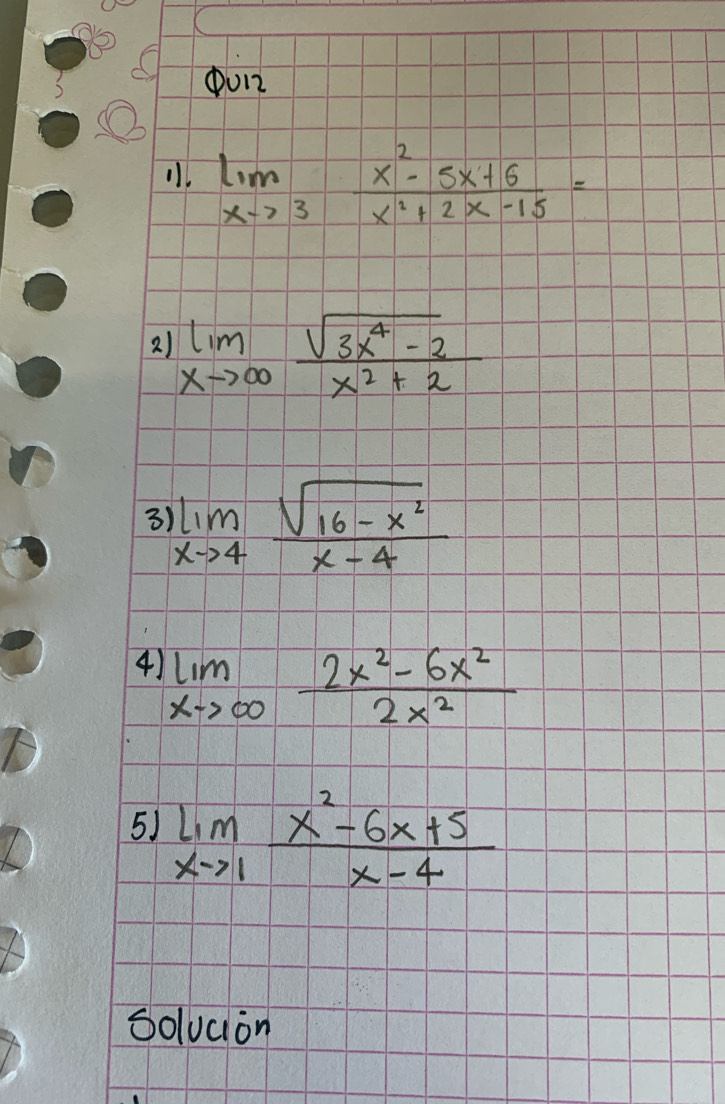 Quiz
1). lim x→3 (x² - 5x + 6)/(x² + 2x - 15) =
2) lim x→∞ √(3x⁴ - 2)/(x² + 2)
3) lim x→4 √(16 - x²)/(x - 4)
4) lim x→∞ (2x² - 6x²)/(2x²)
5) Lim x→1 (x² - 6x + 5)/(x - 4)
Solución